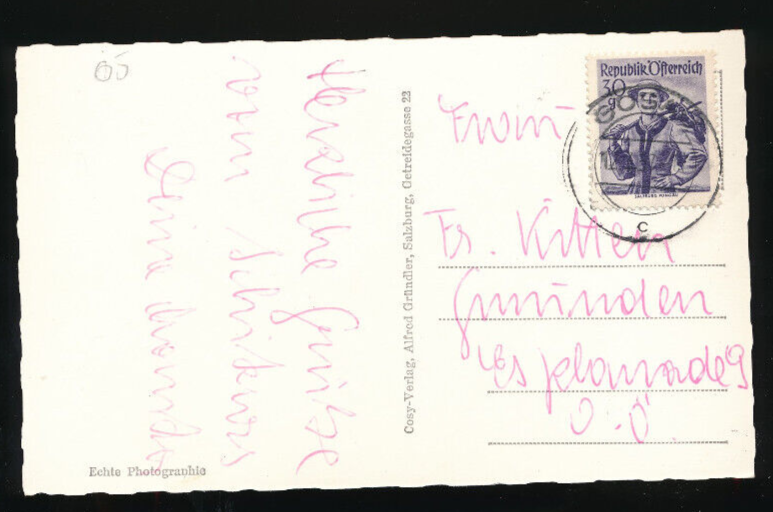 65
Herzliche Grüße
vom Schikurs
Deine
Cosy-Verlag, Alfred Gründler, Salzburg, Getreidegasse 22
Echte Photographie
Republik Österreich
30 g
GOS
C
Fr. Kittler
Gmunden
Esplanade 9
O.Ö.